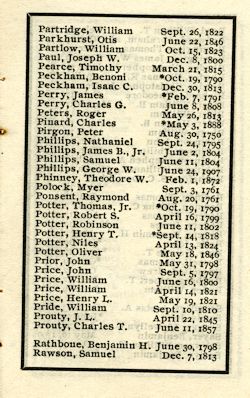 Partridge, William Sept. 26, 1822
Parkhurst, Otis June 22, 1846
Partlow, William Oct. 15, 1823
Paul, Joseph W. Dec. 8, 1800
Pearce, Timothy March 21, 1815
Peckham, Benoni *Oct. 19, 1790
Peckham, Isaac C. Dec. 30, 1813
Perry, James *Feb. 7, 1791
Perry, Charles G. June 8, 1808
Peters, Roger May 26, 1813
Pinard, Charles *May 3, 1888
Pirgon, Peter Aug. 30, 1750
Phillips, Nathaniel Sept. 24, 1795
Phillips, James B., Jr. June 2, 1804
Phillips, Samuel June 11, 1804
Phillips, George W. June 24, 1907
Phinney, Theodore W. Feb. 1, 1872
Polock, Myer Sept. 3, 1761
Ponsent, Raymond Aug. 20, 1761
Potter, Thomas, Jr. *Oct. 19, 1790
Potter, Robert S. April 16, 1799
Potter, Robinson June 11, 1802
Potter, Henry T. *Sept. 14, 1818
Potter, Niles April 13, 1824
Potter, Oliver May 18, 1846
Prior, John May 31, 1798
Price, John Sept. 5, 1797
Price, William June 16, 1800
Price, William April 14, 1821
Price, Henry L. May 19, 1821
Pride, William Sept. 10, 1810
Prouty, J. L. April 22, 1845
Prouty, Charles T. June 11, 1857
Rathbone, Benjamin H. June 30, 1798
Rawson, Samuel Dec. 7, 1813